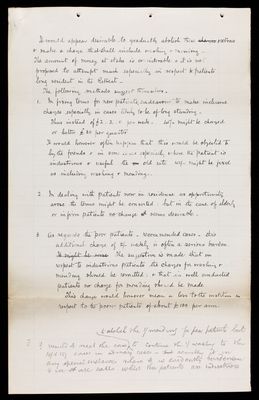 It would appear desirable to gradually abolish these extras
& make a charge that shall include washing & mending.
The amount of money at stake is considerable & it is not
proposed to attempt much especially in respect to patients
long resident in the Retreat.
The following methods suggest themselves.
1. In fixing terms for new patients, endeavour to make inclusive
charges especially in cases likely to be of long standing.
Thus instead of £2. 2. 0 per week. might be charged
or better £ per quarter.
It would however often happen that this would be objected to
by the friends & in such cases especially where the patient is
industrious & useful the old rate might be fixed
as including washing & mending.
2. In dealing with patients now in residence as opportunity
arose the terms might be converted. but in the case of elderly
or infirm patients no change seems desirable.
3. As regards the poor patients. Recommended cases. this
additional charge of weekly is often a serious burden.
It might be The suggestion is made that in
respect to industrious patients the charges for washing &
mending should be remitted. & that in well conducted
patients no charge for mending should be made.
This change would however mean a loss to the institution in
respect to the poorer patients of about £ per ann.
abolish the mending for poor patients but
to continue the washing
cases in ordinary cases
any special instance where it is evidently burdensome
calls while the patients are industrious